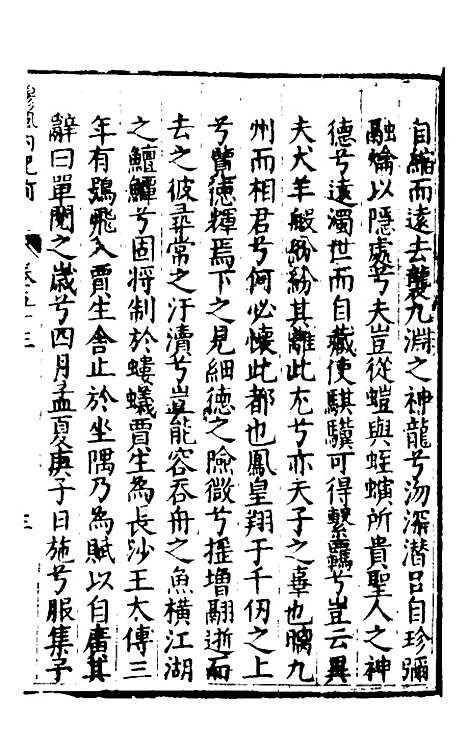 自縮而遠去襲九淵之神龍兮沕深潛以自珍彌
融爚以隱處兮夫豈從螘與蛭螾所貴聖人之神
德兮遠濁世而自藏使騏驥可得繫羈兮豈云異
夫犬羊般紛紛其離此尤兮亦夫子之辜也瞝九
州而相君兮何必懷此都也鳳皇翔于千仞之上
兮覽德輝焉下之見細德之險微兮搖增翮逝而
去之彼尋常之汙瀆兮豈能容吞舟之魚橫江湖
之鱣鱏兮固將制於螻蟻賈生為長沙王太傅三
年有鵩飛入賈生舍止於坐隅乃為賦以自廣其
辭曰單閼之歲兮四月孟夏庚子日施兮服集予
卷五十三
三